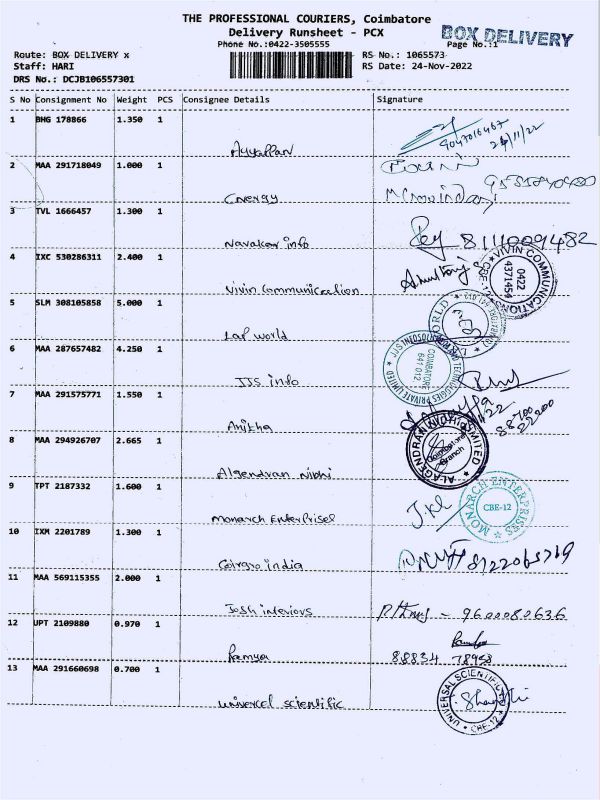 THE PROFESSIONAL COURIERS, Coimbatore
Delivery Runsheet - PCX
BOX DELIVERY
Phone No.:0422-3505555
Page No.:1
Route: BOX DELIVERY x
RS No.: 1065573
Staff: HARI
RS Date: 24-Nov-2022
DRS No.: DCJB106557301
S No Consignment No Weight PCS Consignee Details Signature
1 BHG 178866 1.350 1
Ayyappan
9047016467
24/11/22
2 MAA 291718049 1.000 1
Cnergy
3 TVL 1666457 1.300 1
Navakar info
8111009482
4 IXC 530286311 2.400 1
Vivin Communication
VIVIN COMMUNICATION
0422
4371454
CBE-12
5 SLM 308105858 5.000 1
Lap world
6 MAA 287657482 4.250 1
JJS info
COIMBATORE
641 012
7 MAA 291575771 1.550 1
Anitha
8 MAA 294926707 2.665 1
Algendran Nidhi
AL-AGENDRAN NIDHI LIMITED
Coimbatore
Branch
9 TPT 2187332 1.600 1
Monarch Enterprises
MONARCH ENTERPRISES
CBE-12
10 IXM 2201789 1.300 1
india
8122065769
11 MAA 569115355 2.000 1
Josh interiors
9600080636
12 UPT 2109880 0.970 1
Ramya
88834 78958
13 MAA 291660698 0.700 1
universel scientific
UNIVERSAL SCIENTIFIC
CBE-12